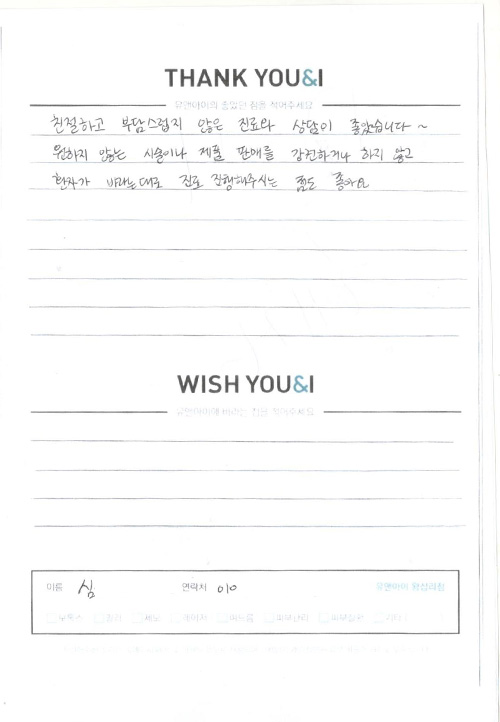 THANK YOU&I
유앤아이의 좋았던 점을 적어주세요
친절하고 부담스럽지 않은 진료와 상담이 좋았습니다 ~
원하지 않는 시술이나 제품 판매를 강권하거나 하지 않고
환자가 바라는대로 진료 진행해주시는 점도 좋아요
WISH YOU&I
유앤아이에 바라는 점을 적어주세요
이름 심 연락처 010 유앤아이 왕십리점
보톡스 필러 제모 레이저 여드름 피부관리 기타